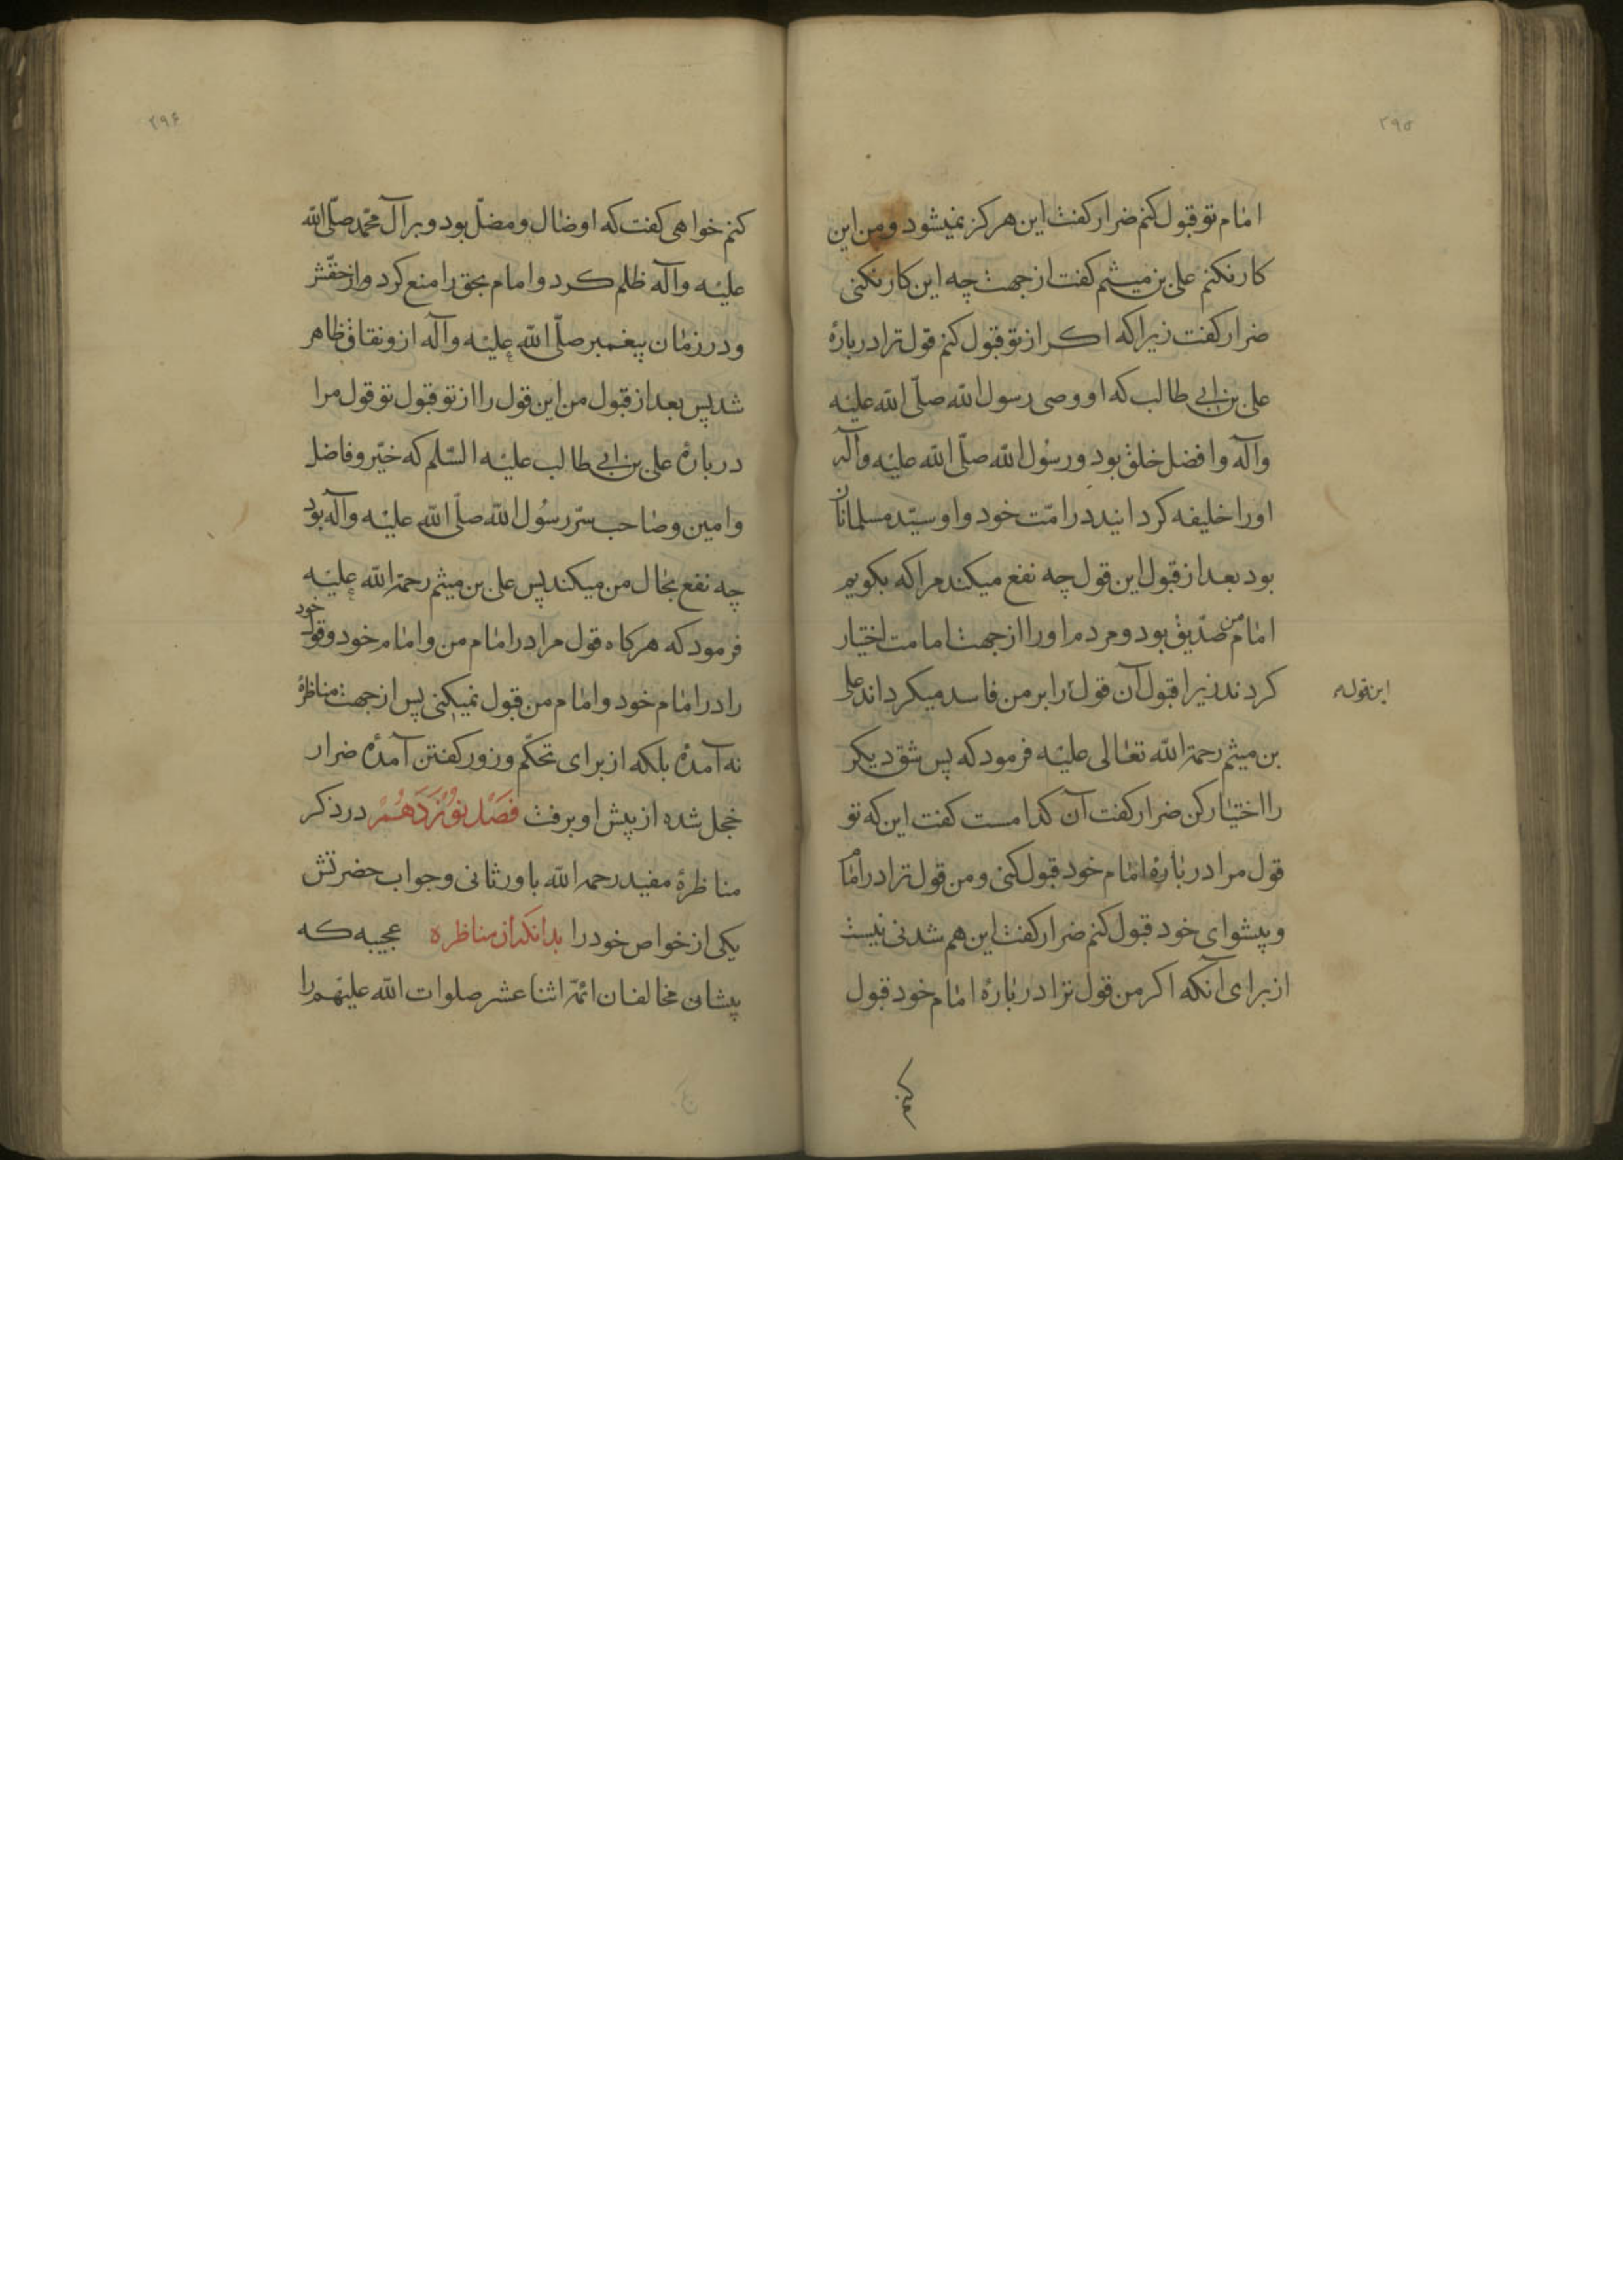 ۲۹۵
امام تو قبول کنم ضرار کفت این هرکز نمیشود و من این
کار نکنم علی بن میثم کفت از جهت چه این کار نکنی
ضرار کفت زیرا که اکر از تو قبول کنم قول ترا در بارهٔ
علی بن ابی طالب که او وصی رسول الله صلّی الله علیه
وآله وافضل خلق بود ورسُول الله صلّی الله علیه وآله
اورا خلیفه کردانید در امّت خود واو سیّد مسلمانان
بود بعد از قبول این قول چه نفع میکند مرا که بکویم
امام من صدّیق بود و مردم اورا از جهت امامت اختیار
کردند زیرا قبول آن قول را بر من فاسد میکرداند علی
این قول م
بن میثم رحمة الله تعالی علیه فرمود که پس شق دیکر
را اختیار کن ضرار کفت آن کدامست کفت این که تو
قول مرا در بارهٔ امام خود قبول کنی و من قول ترا در امام
و پیشوای خود قبول کنم ضرار کفت این هم شدنی نیست
از برای آنکه اکر من قول ترا در بارهٔ امام خود قبول
کنم
۲۹۶
کنم خواهی کفت که او ضال و مضلّ بود و بر آل محمّد صلّی الله
علیه وآله ظلم کرد و امام بحق را منع کرد و از حقّش
و در زمان پیغمبر صلّی الله علیه وآله ازو نفاق ظاهر
شد پس بعد از قبول من این قول را از تو قبول تو قول مرا
در بارهٔ علی بن ابی طالب علیه السّلم که خیّر و فاضل
و امین و صاحب سرّ رسُول الله صلّی الله علیه وآله بود
چه نفع بحال من میکند پس علی بن میثم رحمة الله علیه
فرمود که هرکاه قول مرا در امام من و امام خود و قول خود
را در امام خود و امام من قبول نمیکنی پس از جهت مناظرهٔ
نه آمدهٔ بلکه از برای تحکّم و زور کفتن آمدهٔ ضرار
خجل شده از پیش او برفت فَصْل نوُزدَهُمْ در ذکر
مناظرهٔ مفید رحمه الله با ورثانی و جواب حضرتش
یکی از خواص خود را بدانکه از مناظره عجیبه که
پیشانی مخالفان ائمّه اثنا عشر صلوات الله علیهم را